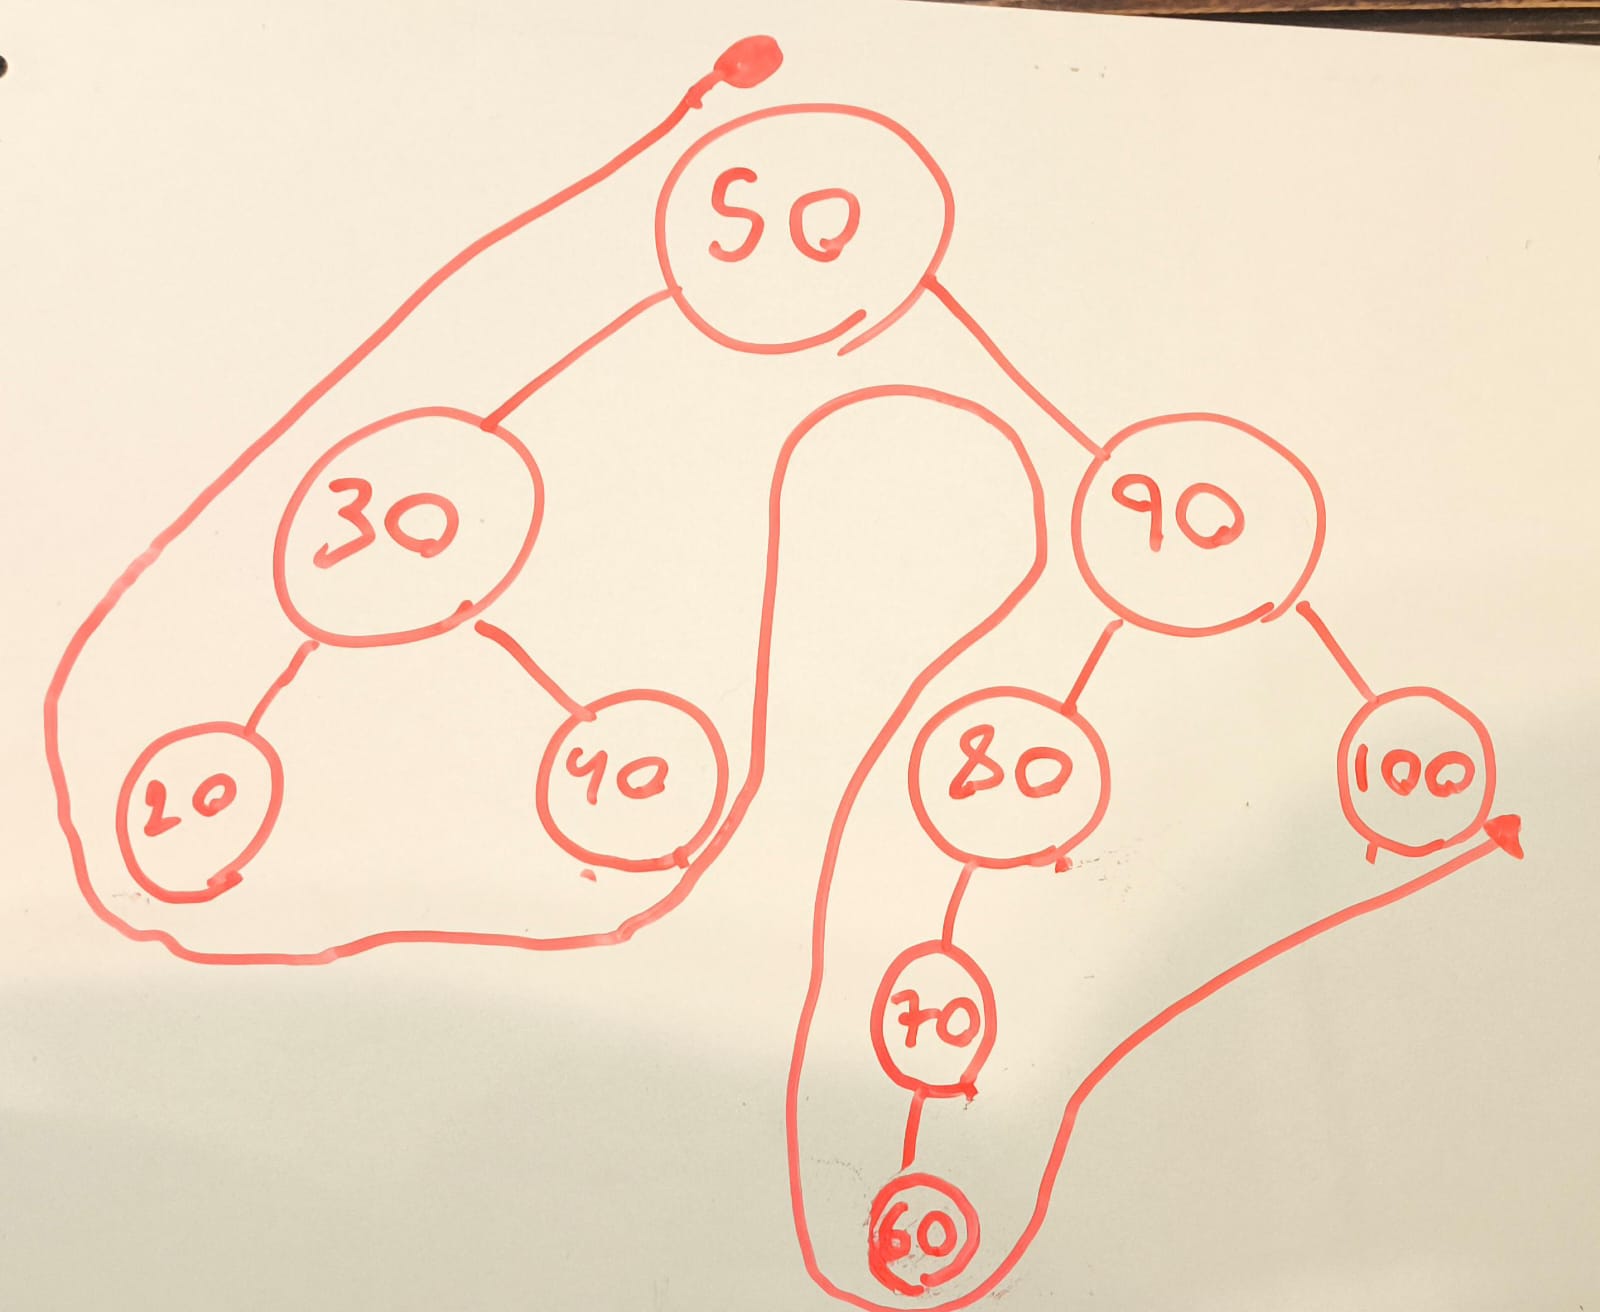 50
30 90
20 40 80 100
70
60